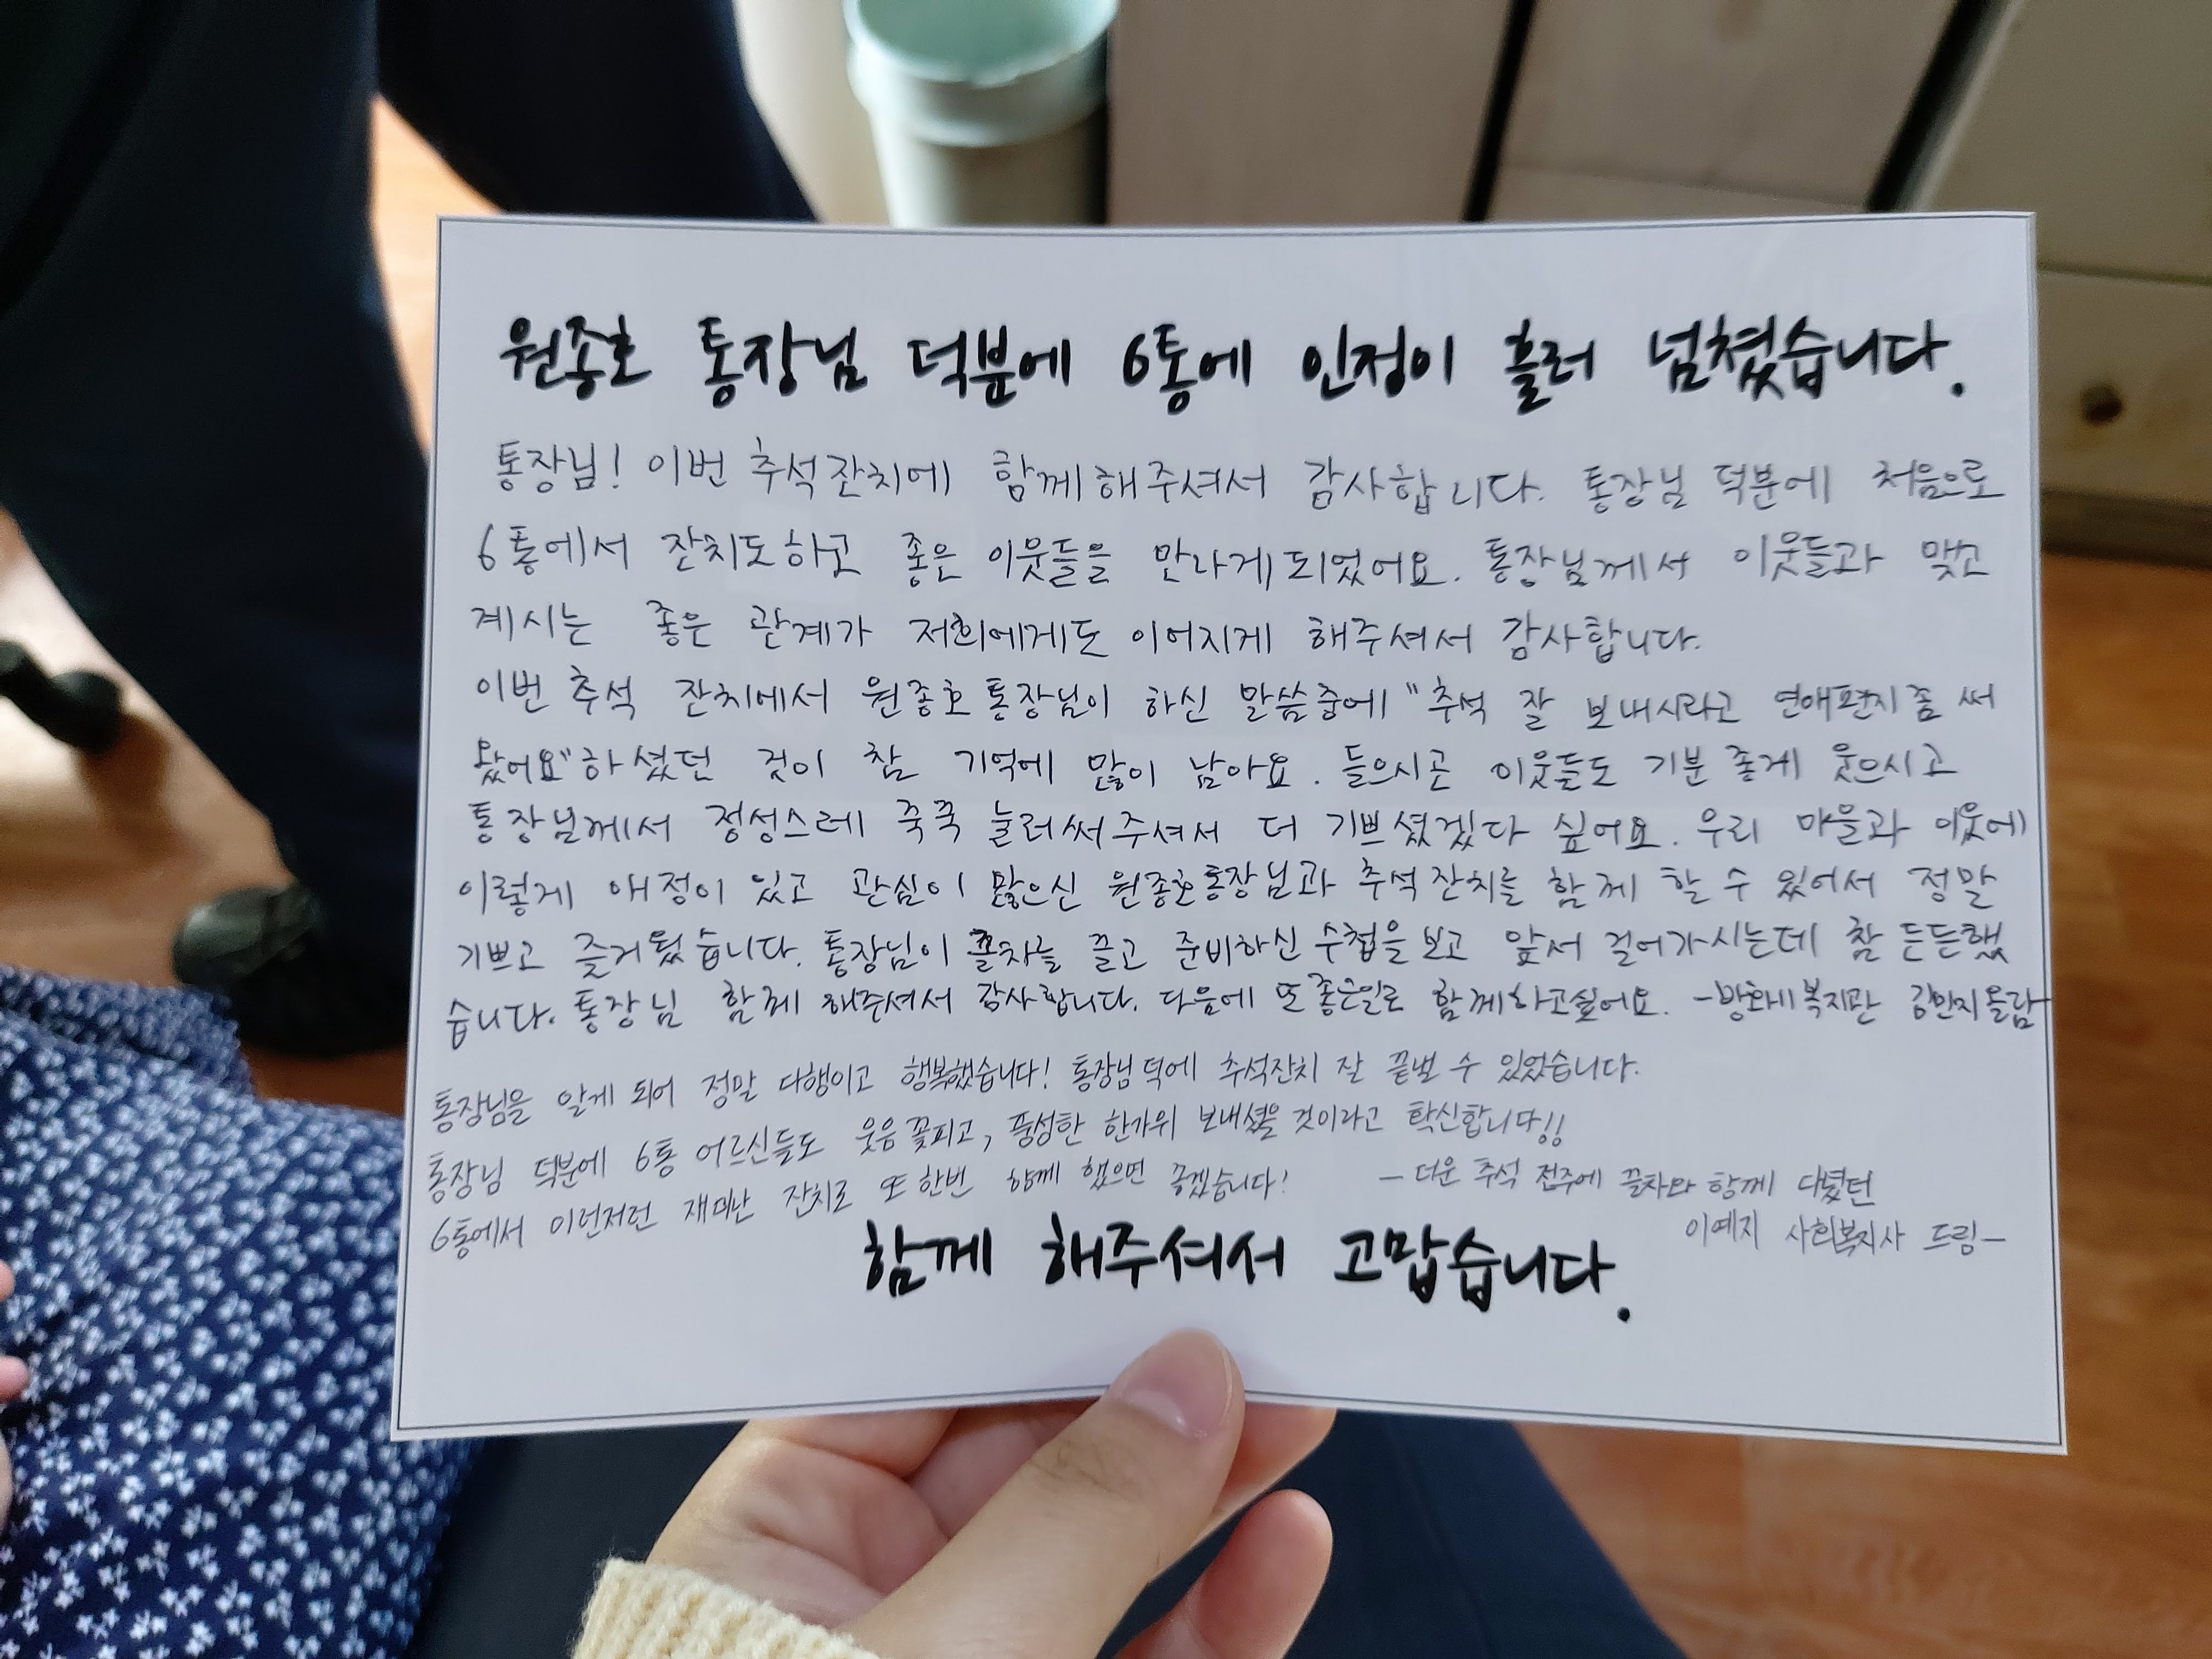 원종호 통장님 덕분에 6통에 인정이 흘러 넘쳤습니다.
통장님! 이번 추석잔치에 함께해주셔서 감사합니다. 통장님 덕분에 처음으로
6통에서 잔치도하고 좋은 이웃들을 만나게되었어요. 통장님께서 이웃들과 맺고
계시는 좋은 관계가 저희에게도 이어지게 해주셔서 감사합니다.
이번 추석 잔치에서 원종호통장님이 하신 말씀중에 "추석 잘 보내시라고 연애편지좀 써
왔어요"하셨던 것이 참 기억에 많이 남아요. 들으시곤 이웃들도 기분 좋게 웃으시고
통장님께서 정성스레 죽죽 눌러써주셔서 더 기쁘셨겠다 싶어요. 우리 마을과 이웃에
이렇게 애정이 있고 관심이 많으신 원종호통장님과 추석잔치를 함께 할 수 있어서 정말
기쁘고 즐거웠습니다. 통장님이 끌차를 끌고 준비하신 수첩을보고 앞서 걸어가시는데 참 든든했
습니다. 통장님 함께 해주셔서 감사합니다. 다음에 또좋은일로 함께하고싶어요. -방화11복지관 김민지올림-
통장님을 알게 되어 정말 다행이고 행복했습니다! 통장님덕에 추석잔치 잘 끝낼 수 있었습니다.
통장님 덕분에 6통 어르신들도 웃음꽃피고, 풍성한 한가위 보내셨을 것이라고 확신합니다!!
6통에서 이런저런 재미난 잔치로 또한번 함께 했으면 좋겠습니다! - 더운 추석 전주에 끌차와 함께 다녔던
이예지 사회복지사 드림-
함께 해주셔서 고맙습니다.